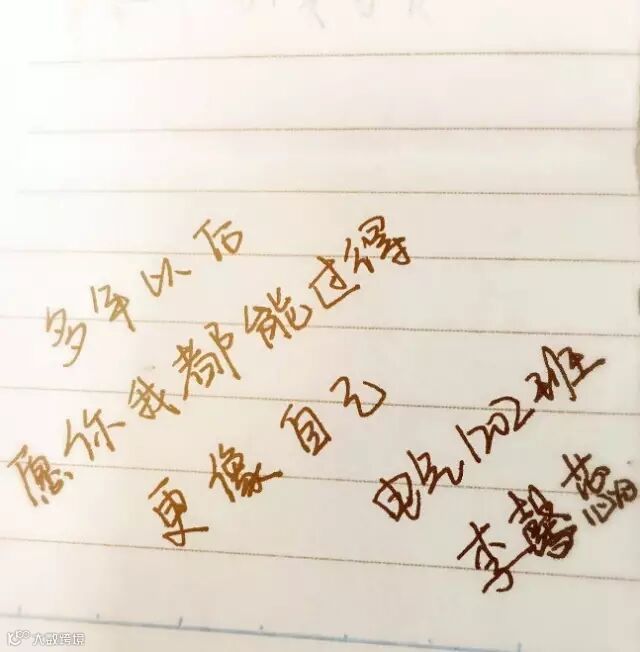 多年以后
愿你我都能过得
更像自己
电气1202班
李馨
大数跨境